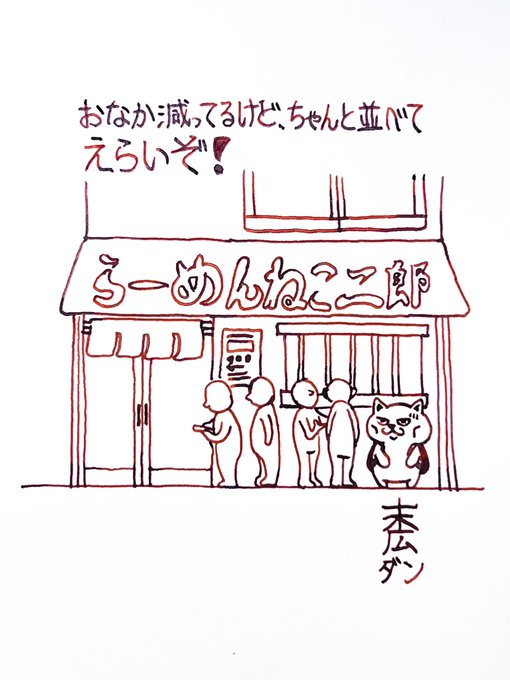 おなか減ってるけど、ちゃんと並べて
えらいぞ!
らーめんねこ二郎
末広
ダン